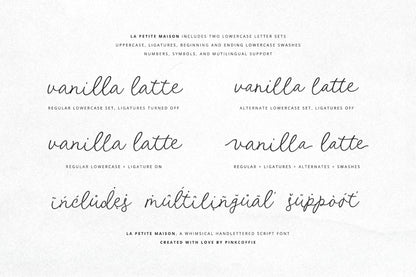 LA PETITE MAISON INCLUDES TWO LOWERCASE LETTER SETS
UPPERCASE, LIGATURES, BEGINNING AND ENDING LOWERCASE SWASHES
NUMBERS, SYMBOLS, AND MUTILINGUAL SUPPORT
vanilla latte vanilla latte
REGULAR LOWERCASE SET, LIGATURES TURNED OFF ALTERNATE LOWERCASE SET, LIGATURES OFF
vanilla latte vanilla latte
REGULAR LOWERCASE + LIGATURE ON REGULAR + LIGATURES + ALTERNATES + SWASHES
includes multilingual support
LA PETITE MAISON, A WHIMSICAL HANDLETTERED SCRIPT FONT
CREATED WITH LOVE BY PINKCOFFIE